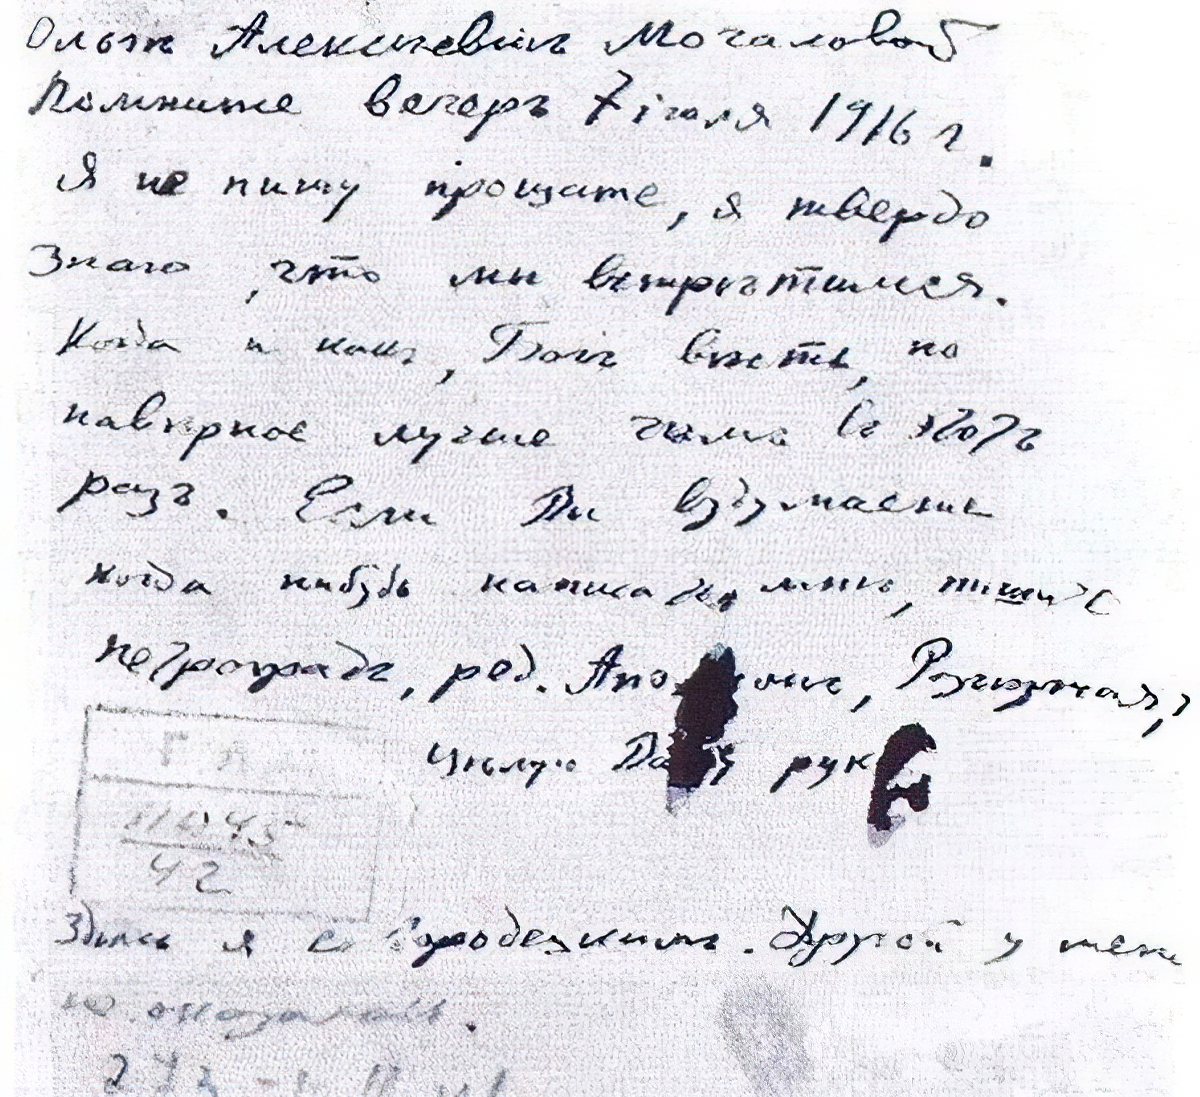 Ольгѣ Алексѣевнѣ Мочаловой
Помните вечеръ 7 іюля 1916 г.
Я не пишу прощайте, я твердо
знаю, что мы встрѣтимся.
Когда и какъ, Богъ вѣсть, но
навѣрное лучше чѣмъ въ этотъ
разъ. Если Вы вздумаете
когда нибудь написать мнѣ, пишите
Петроградъ, ред. Аполлонъ, Разъѣзжая,
Цѣлую Вашу руку
Г.
11045
42
Здѣсь я съ Городецкимъ. Другой у меня
не оказалось.